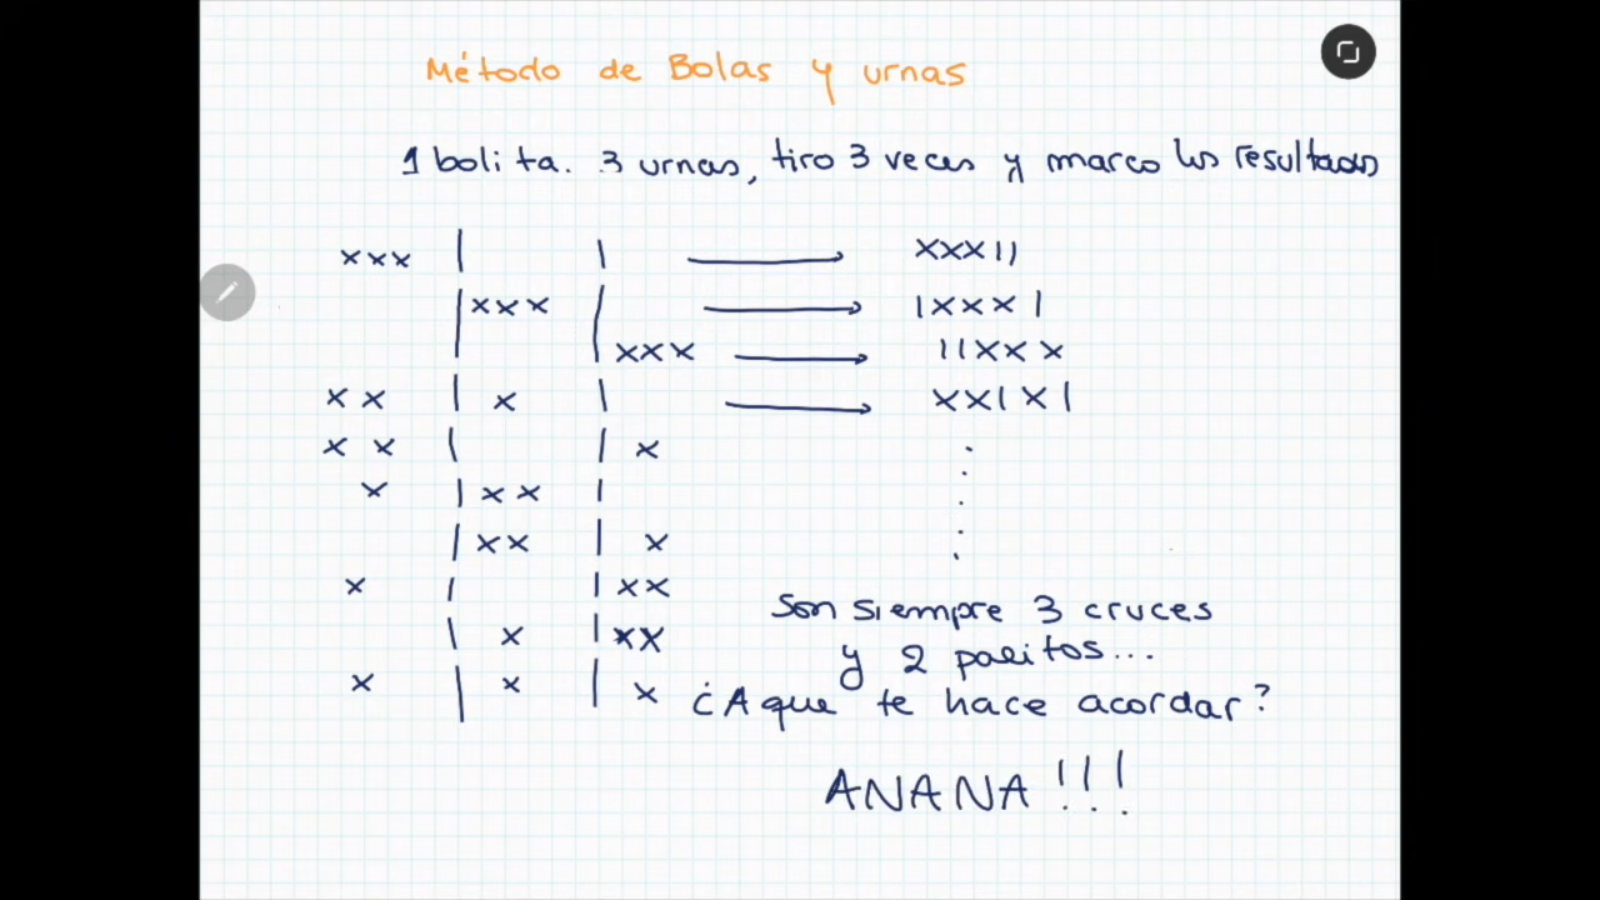 Método de Bolas y urnas
1 bolita. 3 urnas, tiro 3 veces y marco los resultados
xxx | | → xxx||
|xxx | → |xxx|
| |xxx → ||xxx
xx | x | → xx|x|
xx | | x
x | xx |
| xx | x
x | | xx
| x | xx
x | x | x
Son siempre 3 cruces
y 2 palitos...
¿A que te hace acordar?
ANANA!!!